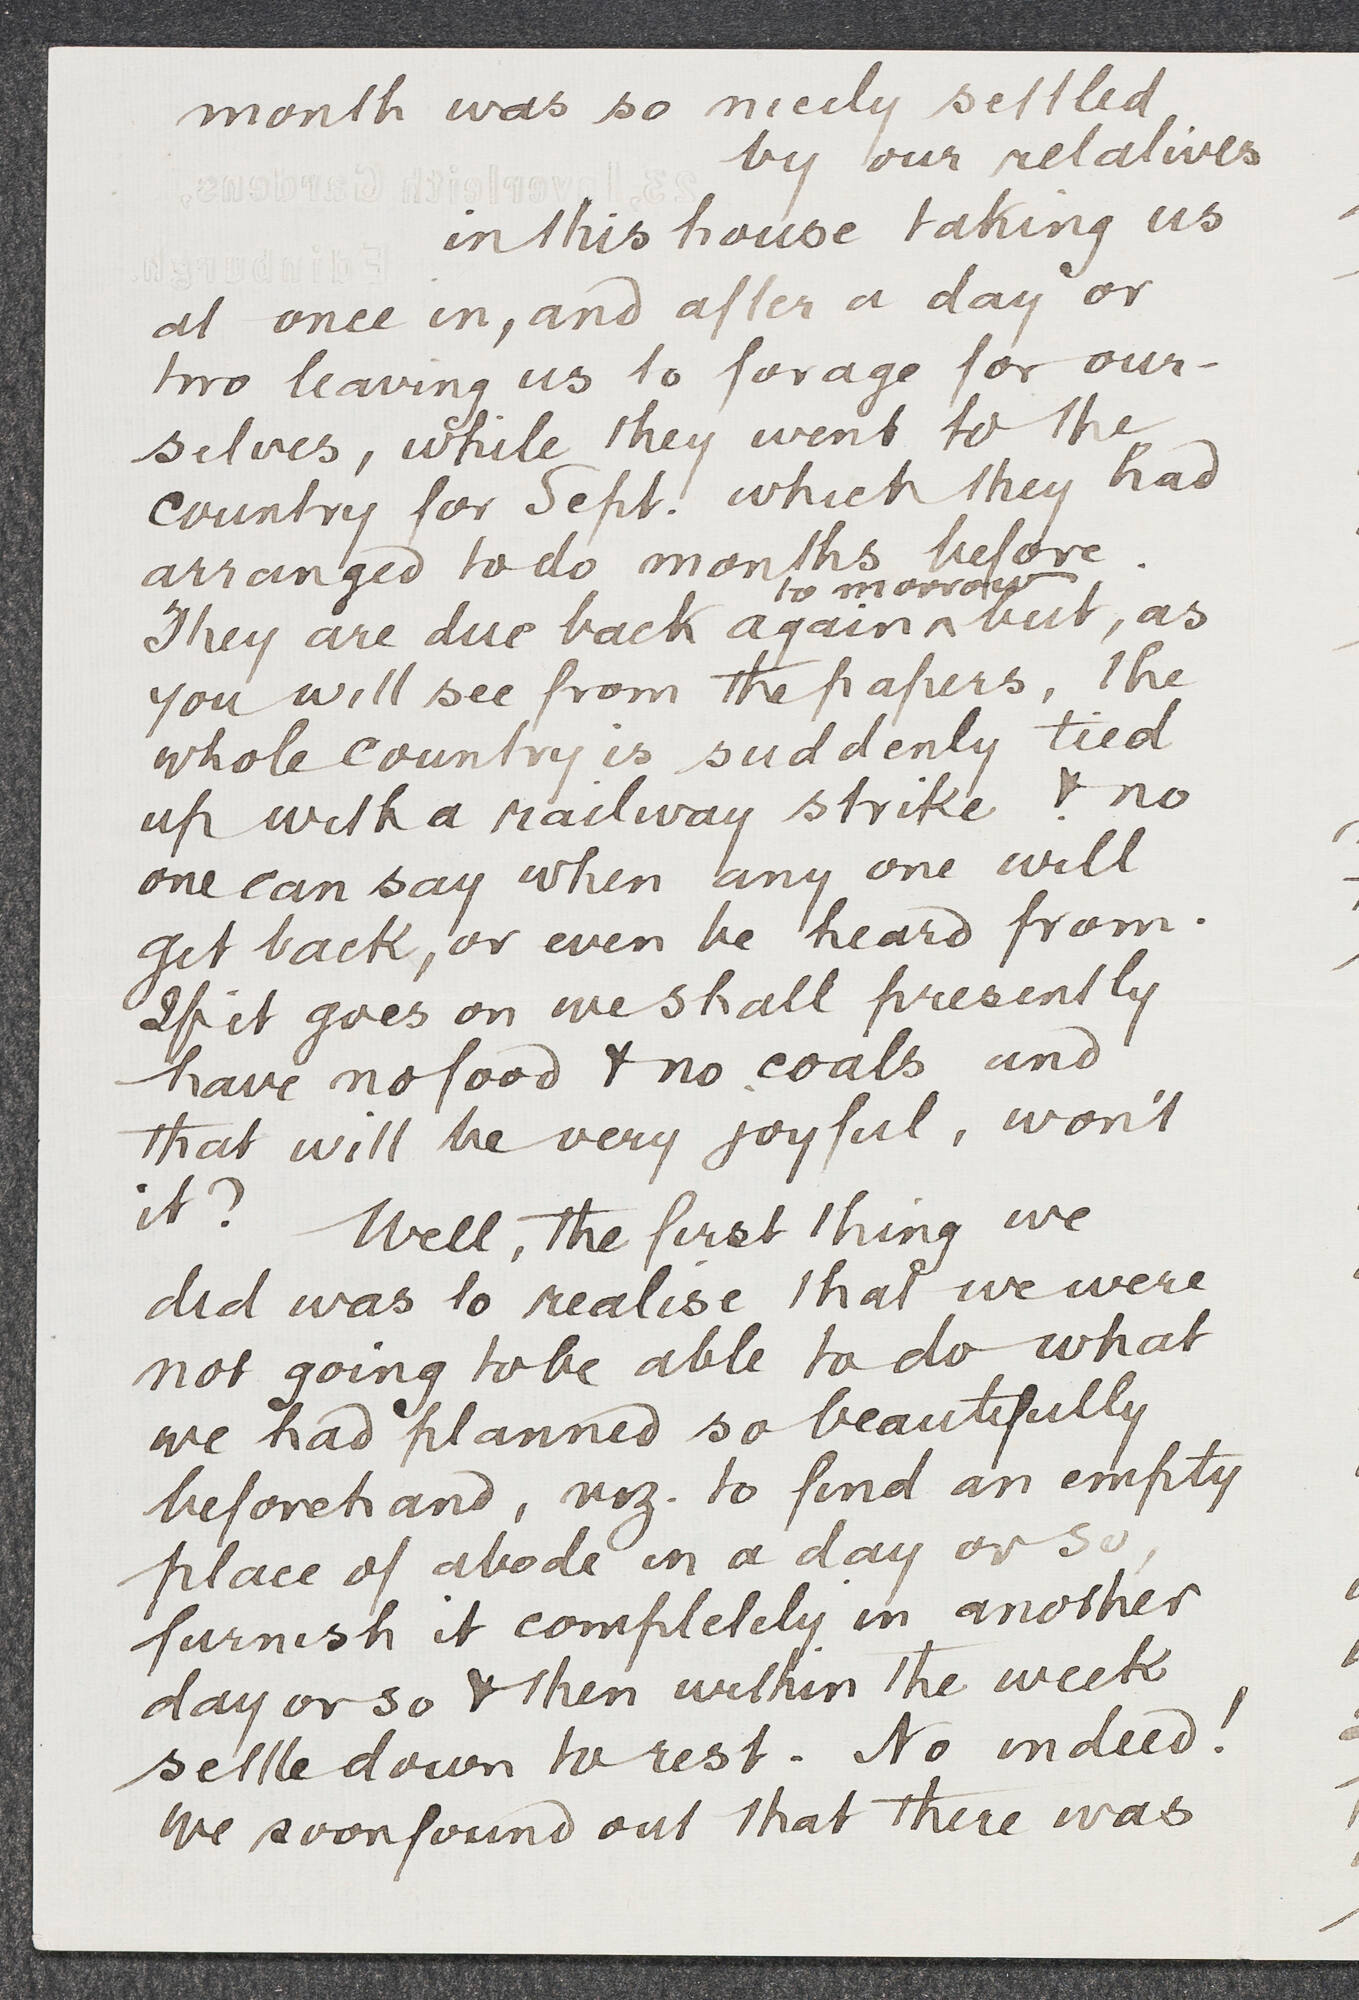 month was so nicely settled
by our relatives
23, Inverleith Gardens,
in this house taking us
Edinburgh.
at once in, and after a day or
two leaving us to forage for our-
selves, while they went to the
country for Sept. which they had
arranged to do months before.
to morrow
They are due back again ^ but, as
you will see from the papers, the
whole country is suddenly tied
up with a railway strike & no
one can say when any one will
get back, or even be heard from.
If it goes on we shall presently
have no food & no coals and
that will be very joyful, won't
it? Well, the first thing we
did was to realise that we were
not going to be able to do what
we had planned so beautifully
beforehand, viz. to find an empty
place of abode in a day or so,
furnish it completely in another
day or so & then within the week
settle down to rest. No indeed!
We soon found out that there was